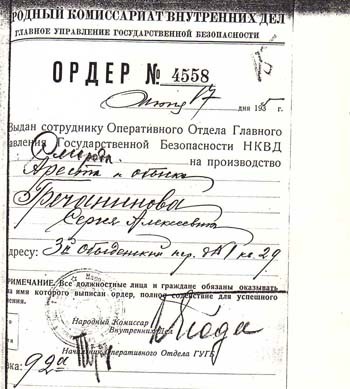 РОДНЫЙ КОМИССАРИАТ ВНУТРЕННИХ ДЕЛ
ГЛАВНОЕ УПРАВЛЕНИЕ ГОСУДАРСТВЕННОЙ БЕЗОПАСНОСТИ
ОРДЕР № 4558
17 дня 193 г.
Выдан сотруднику Оперативного Отдела Главного
авления Государственной Безопасности НКВД
на производство
Ареста и обыска
Гречанинова
Сергея Алексеевича
дресу: 3й Обыденский пер. д № 1 кв 29
РИМЕЧАНИЕ: Все должностные лица и граждане обязаны оказывать
на имя которого выписан ордер, полное содействие для успешного
нения.
Народный Комиссар
Внутренних Дел
Начальник Оперативного Отдела ГУГБ
вка: 92а